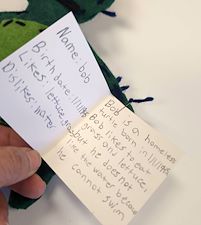 Name: bob
Birth date: 1/1/1985
Likes: lettuce, grass
Dislikes: water
Bob is a homeless
turtle born in 1/1/1985
Bob likes to eat
grass and lettuce,
but he does not
like the water because
he cannot swim